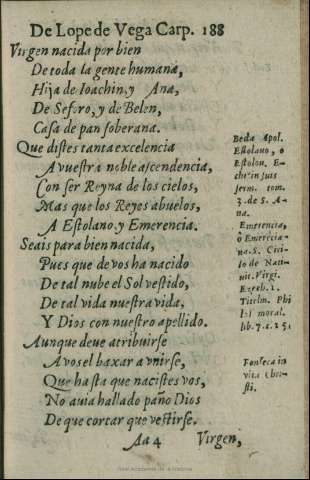 De Lope de Vega Carp. 188
Virgen nacida por bien
De toda la gente humana,
Hija de Ioachin, y Ana,
De Seforo, y de Belen,
Casa de pan soberana.
Que distes tanta excelencia
A vuestra noble ascendencia,
Con ser Reyna de los cielos,
Mas que los Reyes abuelos,
A Estolano, y Emerencia.
Seais para bien nacida,
Pues que de vos ha nacido
De tal nube el Sol vestido,
De tal vida nuestra vida,
Y Dios con nuestro apellido.
Aunque deue atribuirse
A vos el baxar a vnirse,
Que hasta que nacistes vos,
No auia hallado paño Dios
De que cortar que vestirse.
Beda Apol.
Estolano, o
Estolou. E-
chr in suis
serm. tom.
3. de S. A-
na.
Emerencia,
ò Emerēcia-
na. S. Ciri-
lo de
uit. Virgi.
Ezech. 1.
Titelm. Phi
moral.
lib. 7. c. 25.
Fonseca in
vita Chri-
sti.
Aa 4 Virgen,